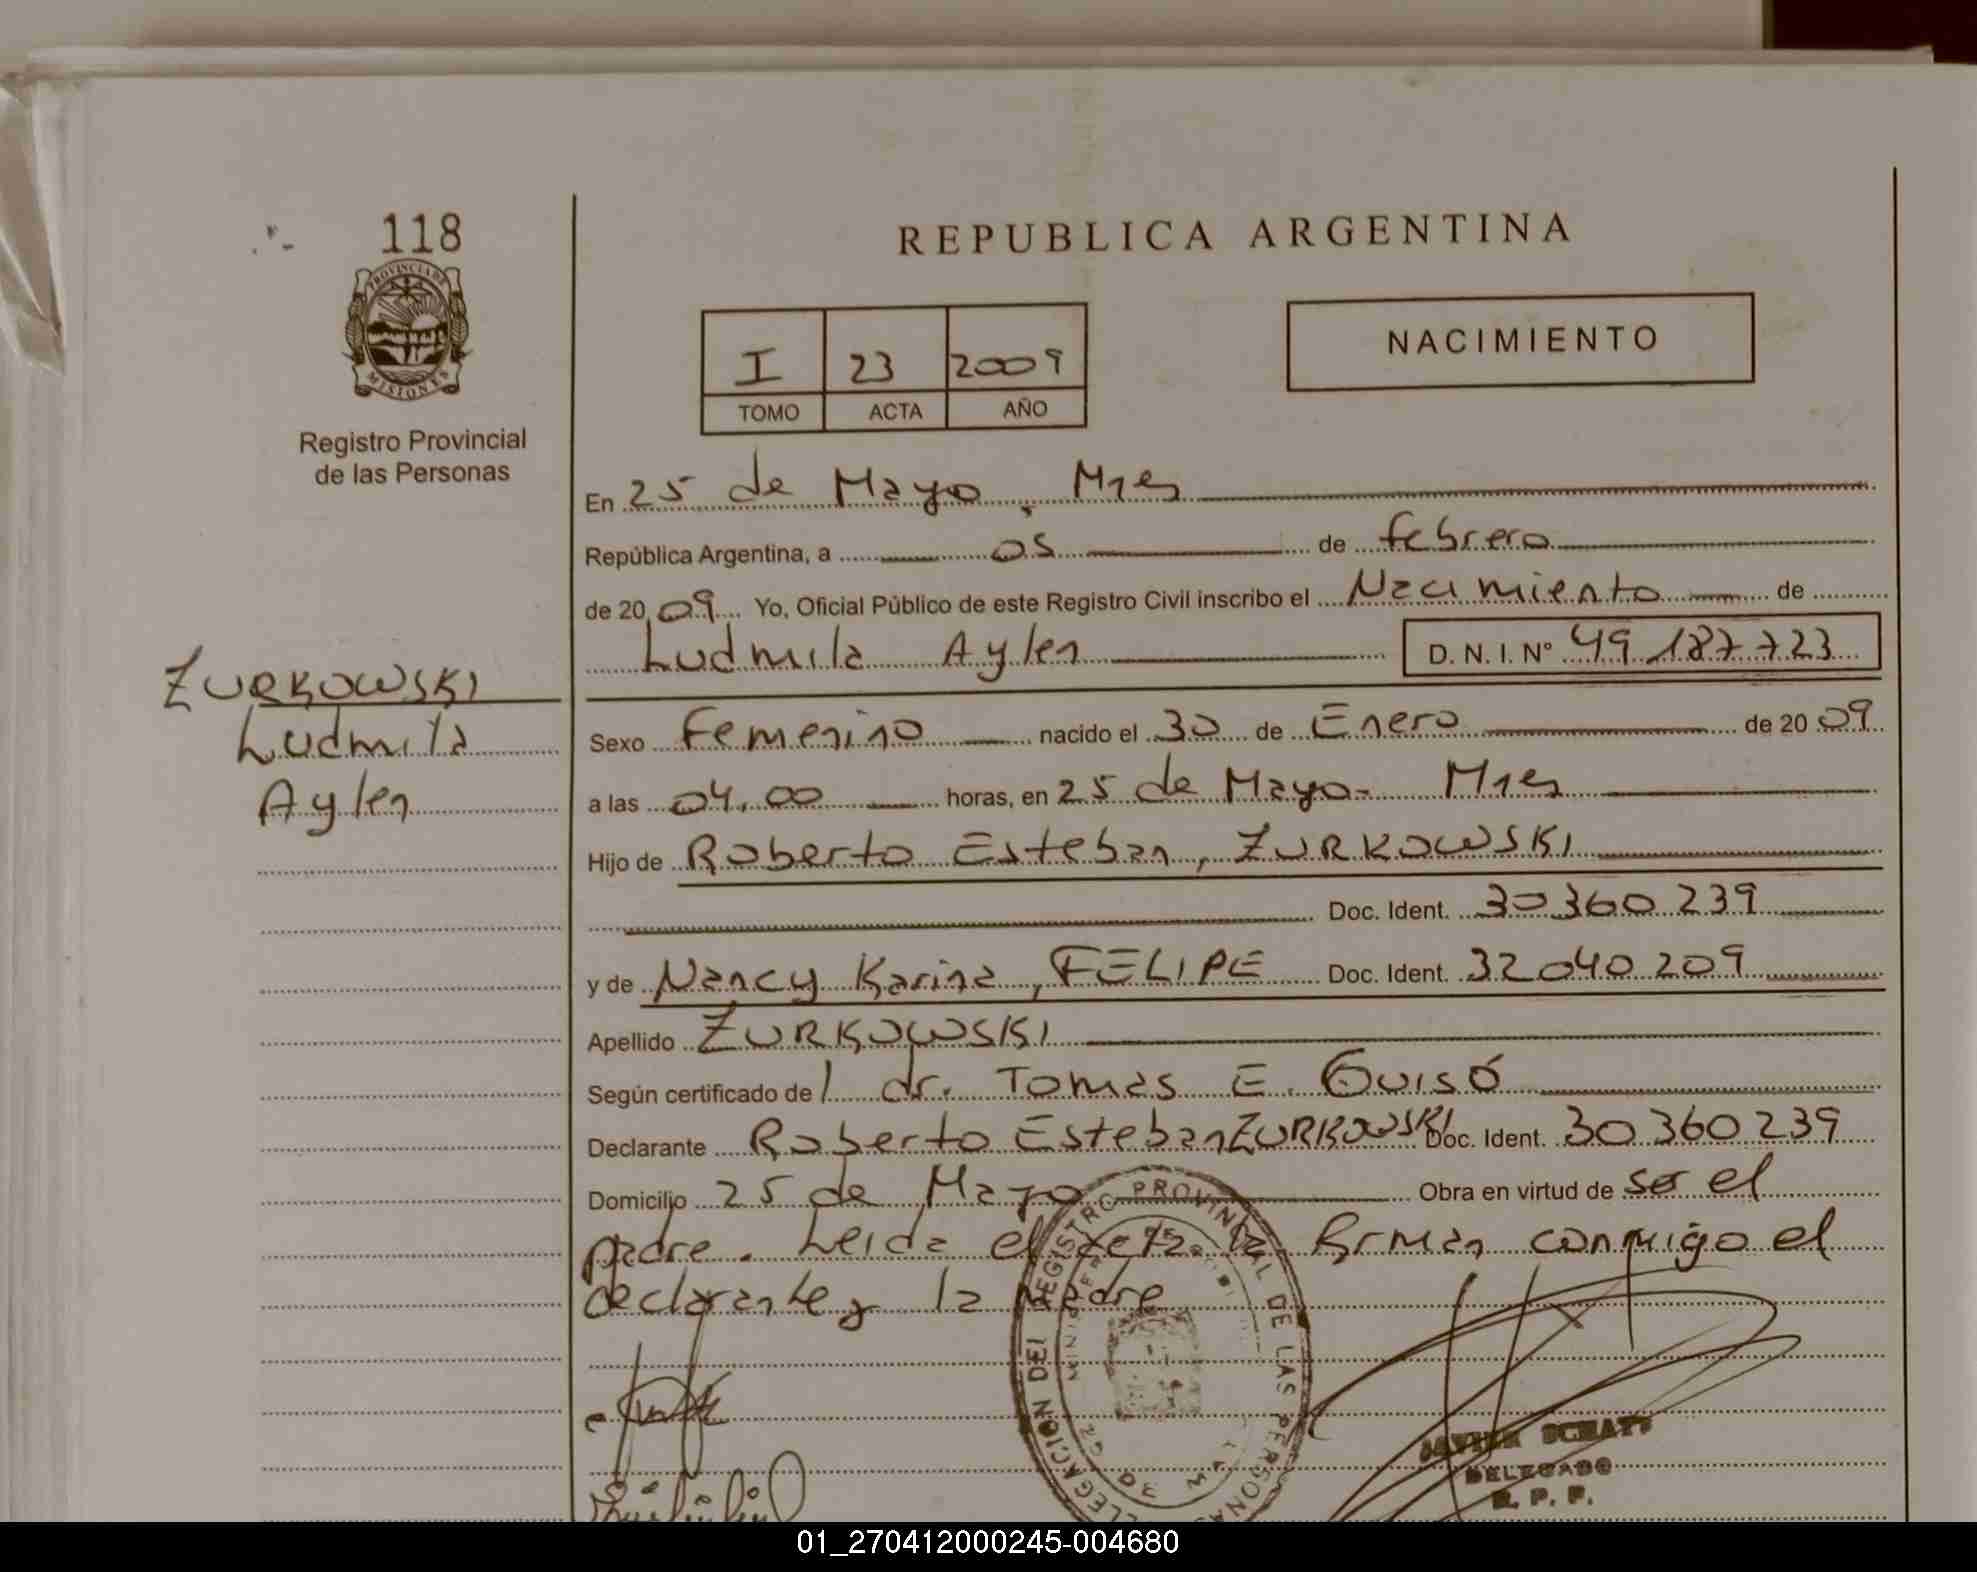 118
PROVINCIA DE
MISIONES
Registro Provincial
de las Personas
REPUBLICA ARGENTINA
I 23 2009
TOMO ACTA AÑO
NACIMIENTO
En 25 de Mayo, Mnes
República Argentina, a 05 de febrero
de 20 09 Yo, Oficial Público de este Registro Civil inscribo el Nacimiento de
Ludmila Aylen D. N. I. N° 49 187 723
ZURKOWSKI
Ludmila
Aylen
Sexo Femenino nacido el 30 de Enero de 20 09
a las 04,00 horas, en 25 de Mayo- Mnes
Hijo de Roberto Esteban, ZURKOWSKI
Doc. Ident. 30 360 239
y de Nancy Karina, FELIPE Doc. Ident. 32 040 209
Apellido ZURKOWSKI
Según certificado de l dr. Tomas E. Guisó
Declarante Roberto Esteban ZURKOWSKI Doc. Ident. 30 360 239
Domicilio 25 de Mayo Obra en virtud de ser el
padre. Leida el acta la firman conmigo el
declarante y la madre
DELEGACION DEL REGISTRO PROVINCIAL DE LAS PERSONAS
JAVIER SCHATZ
DELEGADO
R. P. P.
01_270412000245-004680